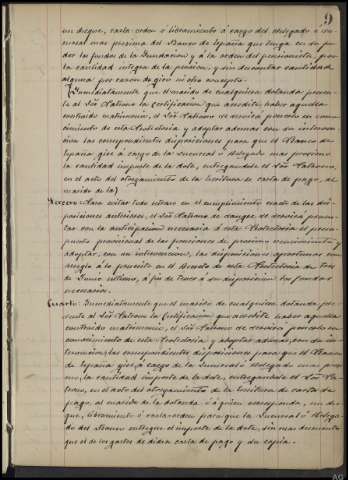 9
un cheque, carta orden ó libramiento á cargo del Delegado ó su-
cursal mas próxima del Banco de España que tenga en su po-
der los fondos de la Fundacion y á la orden del pensionista por
la cantidad íntegra de la pension y sin descontar cantidad
alguna por razon de giro ni otro concepto.
(Inmediatamente que el marido de cualquiera dotanda presen-
te al Sr. Patrono la certificacion que acredite haber aquella
contraido matrimonio, el Sr. Patrono se servirá ponerlo en cono-
cimiento de este Protectoria y adoptar ademas con su interven-
cion las correspondientes disposiciones para que el Banco de
España gire á cargo de la Sucursal ó Delegado mas próximo
la cantidad importe de la dote, entregandose el Sr. Patrono,
en el acto del otorgamiento de la Escritura de carta de pago, al
marido de la)
Tercero. Para evitar todo retraso en el cumplimiento exacto de las dis-
posiciones anteriores, el Sr. Patrono de sangre se servirá presen-
tar con la anticipacion necesaria á este Protectoria el presu-
puesto provisional de las pensiones de próximo vencimiento y
adoptar, con su intervencion, las disposiciones oportunas con
arreglo á lo prescrito en el Decreto de este Protectoria de
Junio último, á fin de tener á su disposicion los fondos
necesarios.
Cuarto. Inmediatamente que el marido de cualquiera dotanda pre-
sente al Sr. Patrono la Certificacion que acredite haber aquella
contraido matrimonio, el Sr. Patrono se servirá ponerlo en
conocimiento de este Protectoria y adoptar ademas, con su in-
tervencion, las correspondientes disposiciones para que el Banco
de España gire á cargo de la Sucursal ó Delegado mas próxi-
mo, la cantidad importe de la dote, entregandose el Sr. Pa-
trono, en el acto del otorgamiento de la Escritura de carta de
pago, al marido de la dotanda ó á quien corresponda, un che-
que, libramiento ó carta-orden para que la Sucursal ó Delega-
do del Banco entregue el importe de la dote, sin mas descuento
que el de los gastos de dicha carta de pago y su copia.